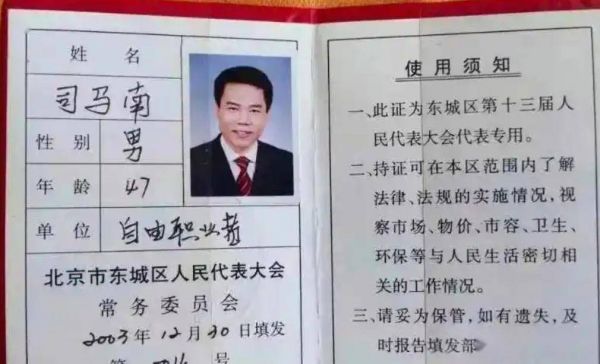 姓 名
司马南
性 别 男
年 龄 47
单 位 自由职业者
北京市东城区人民代表大会
常 务 委 员 会
2003年12月30日填发
第 号
使 用 须 知
一、此证为东城区第十三届人
民代表大会代表专用。
二、持证可在本区范围内了解
法律、法规的实施情况，视
察市场、物价、市容、卫生、
环保等与人民生活密切相
关的工作情况。
三、请妥为保管，如有遗失，及
时报告填发部